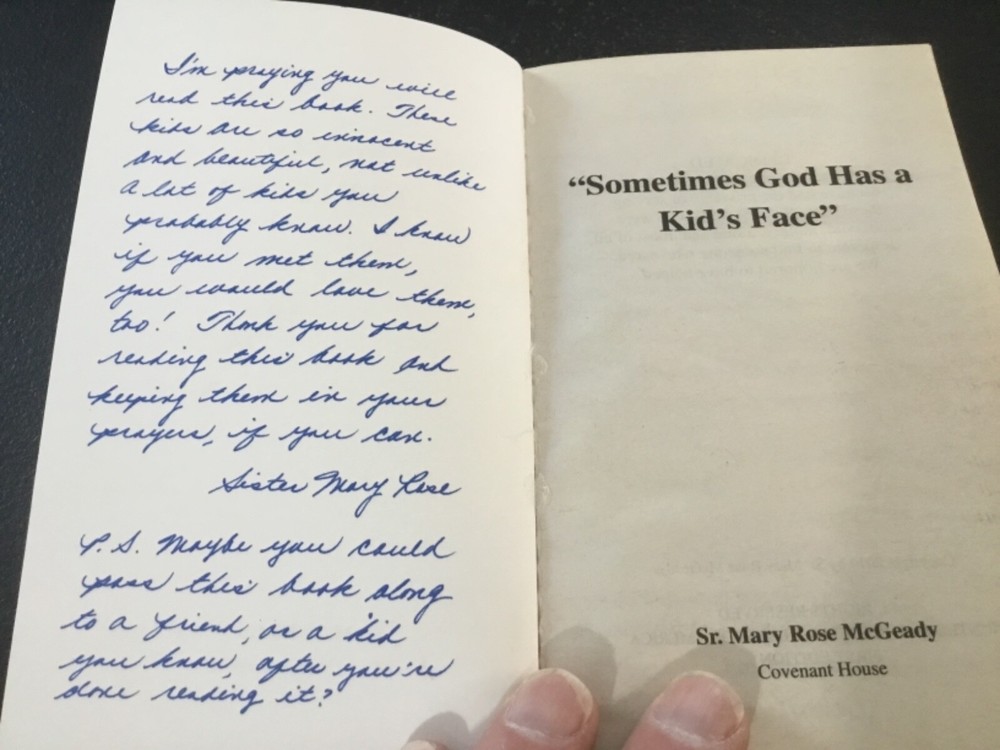 I'm praying you will
read this book. These
kids are so innocent
and beautiful, not unlike
a lot of kids you
probably know. I know
if you met them,
you would love them,
too! Thank you for
reading this book and
keeping them in your
prayers, if you can.
Sister Mary Rose
P.S. Maybe you could
pass this book along
to a friend, or a kid
you know, after you're
done reading it?
“Sometimes God Has a
Kid’s Face”
Sr. Mary Rose McGeady
Covenant House